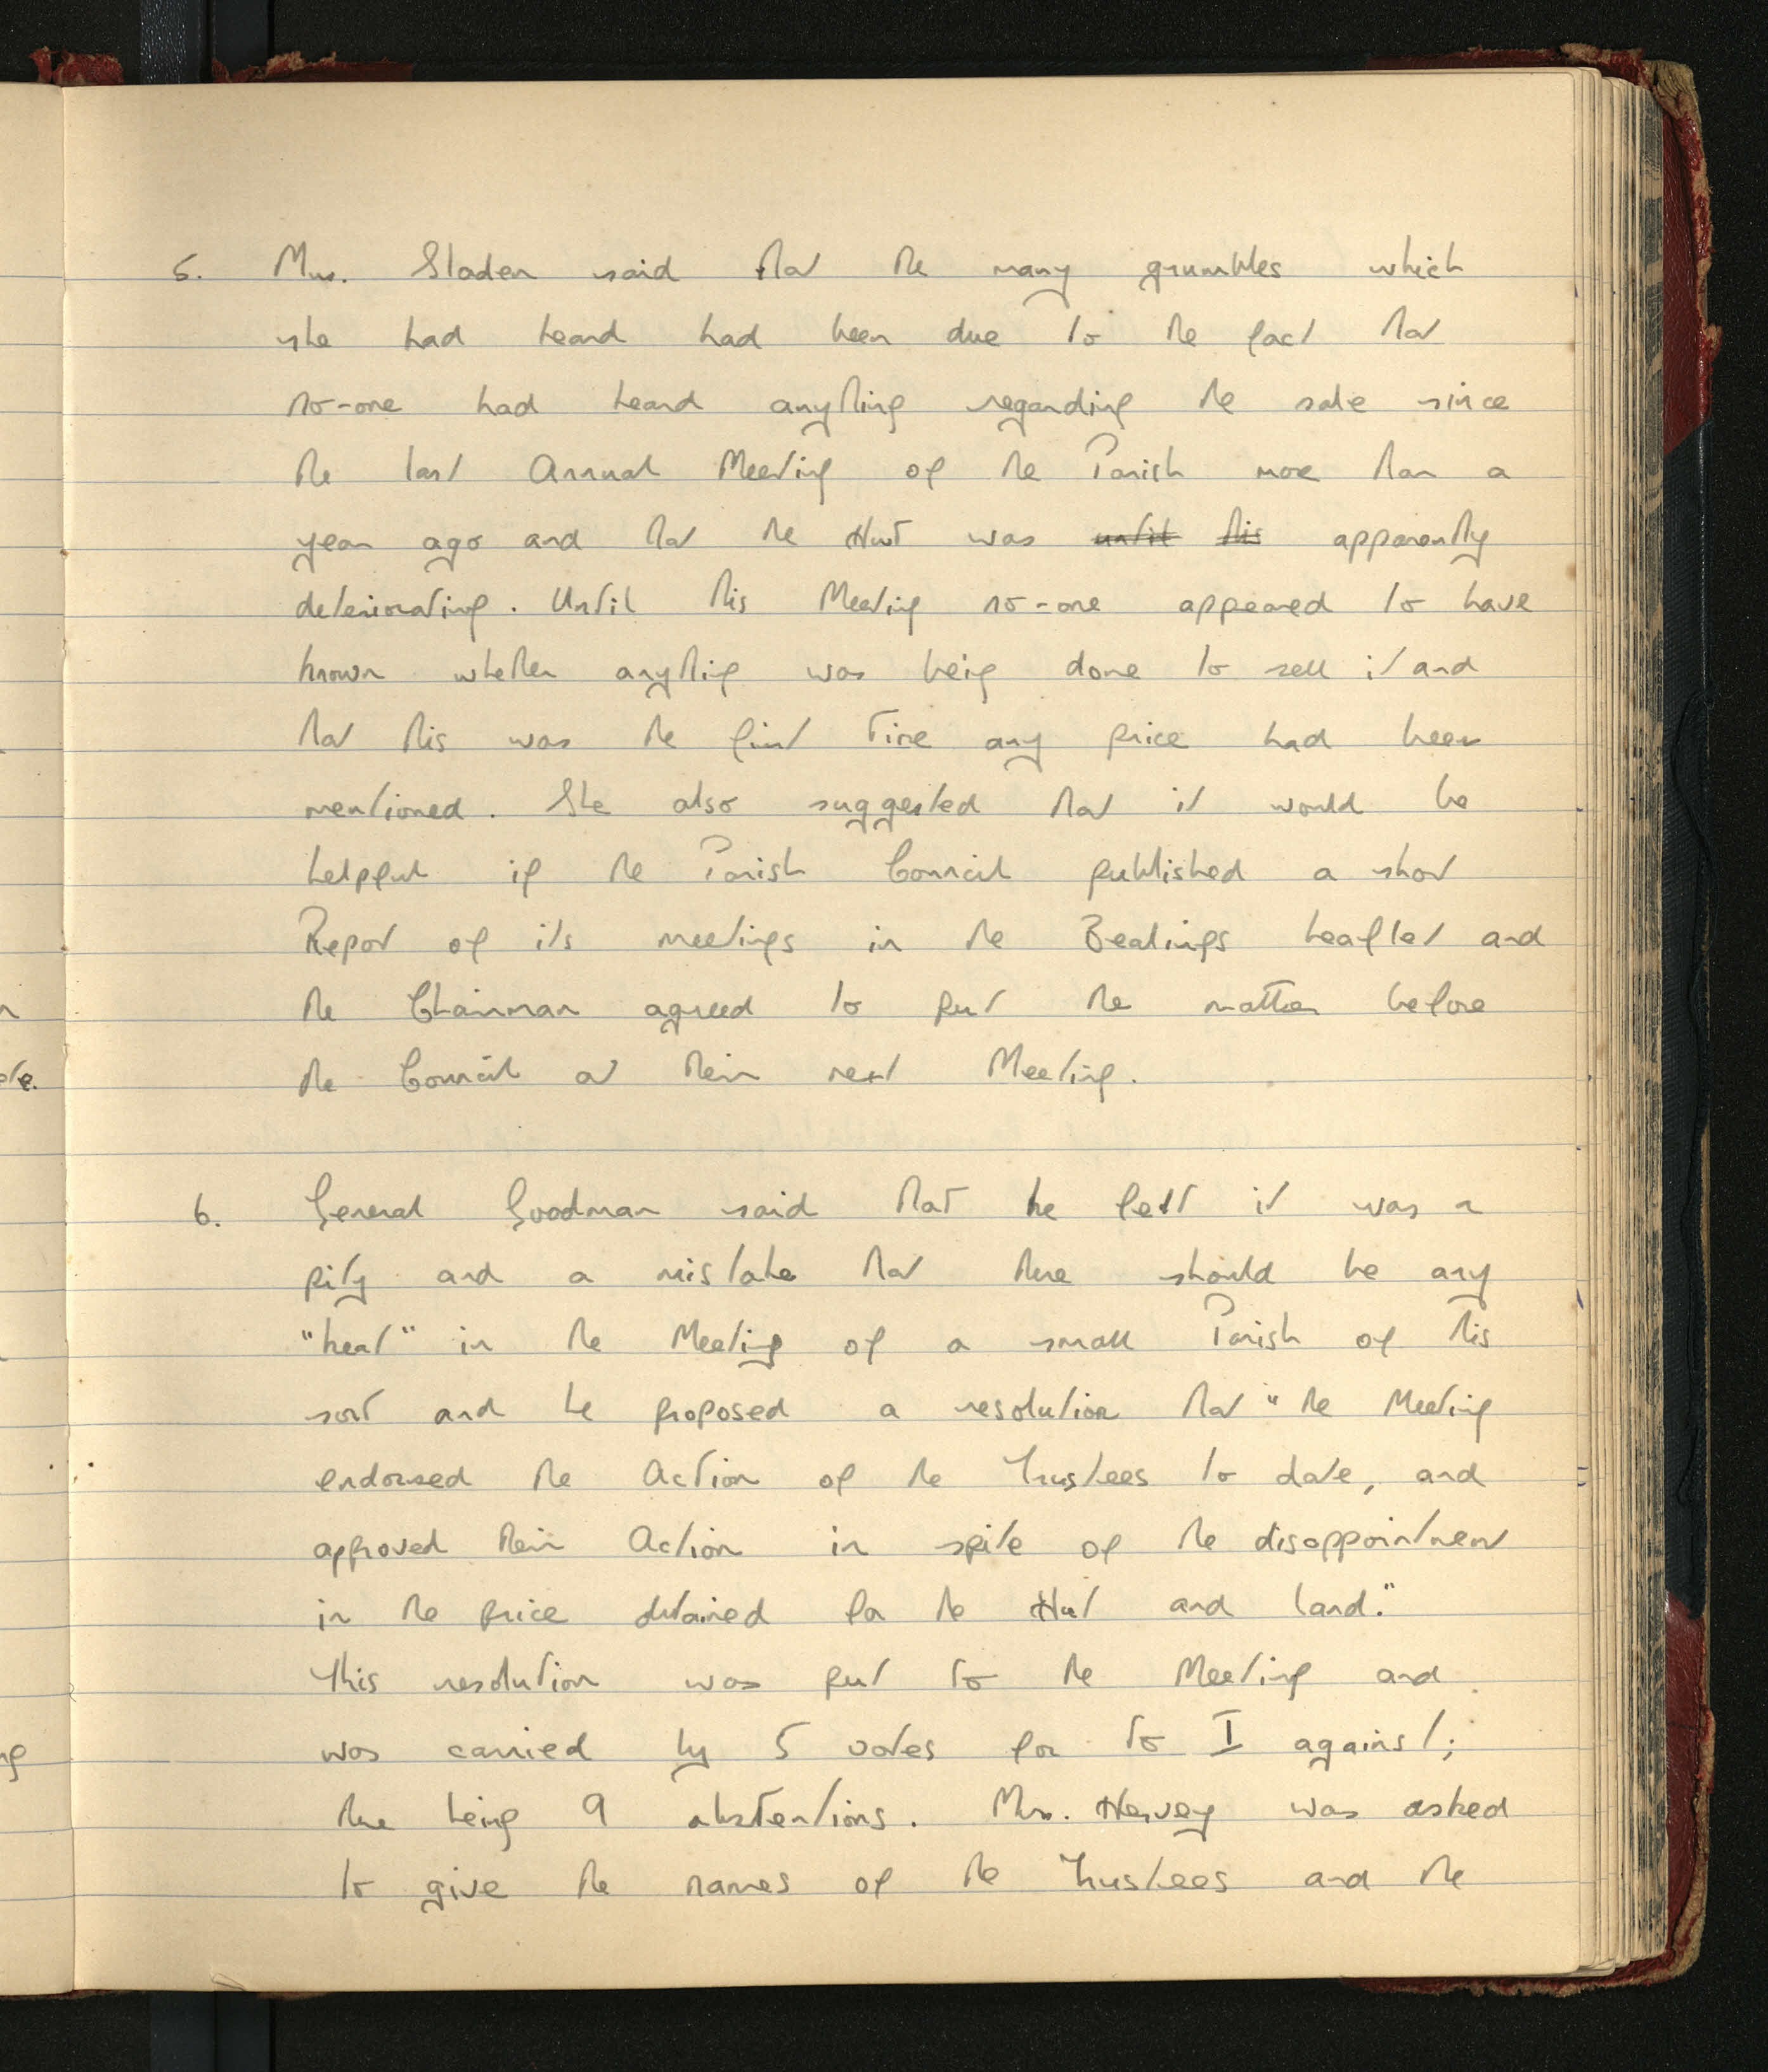 5. Mrs. Sladen said that the many grumbles which
she had heard had been due to the fact that
no-one had heard anything regarding the sale since
the last Annual Meeting of the Parish more than a
year ago and that the Hut was until this apparently
deteriorating. Until this Meeting no-one appeared to have
known whether anything was being done to sell it and
that this was the first time any price had been
mentioned. She also suggested that it would be
helpful if the Parish Council published a short
Report of its meetings in the Bealings Leaflet and
the Chairman agreed to put the matter before
the Council at their next Meeting.
6. General Goodman said that he felt it was a
pity and a mistake that there should be any
"heat" in the Meeting of a small Parish of this
sort and he proposed a resolution that "the Meeting
endorsed the Action of the Trustees to date, and
approved their Action in spite of the disappointment
in the price obtained for the Hut and land."
This resolution was put to the Meeting and
was carried by 5 votes for to I against;
there being 9 abstentions. Mrs. Hervey was asked
to give the names of the Trustees and the